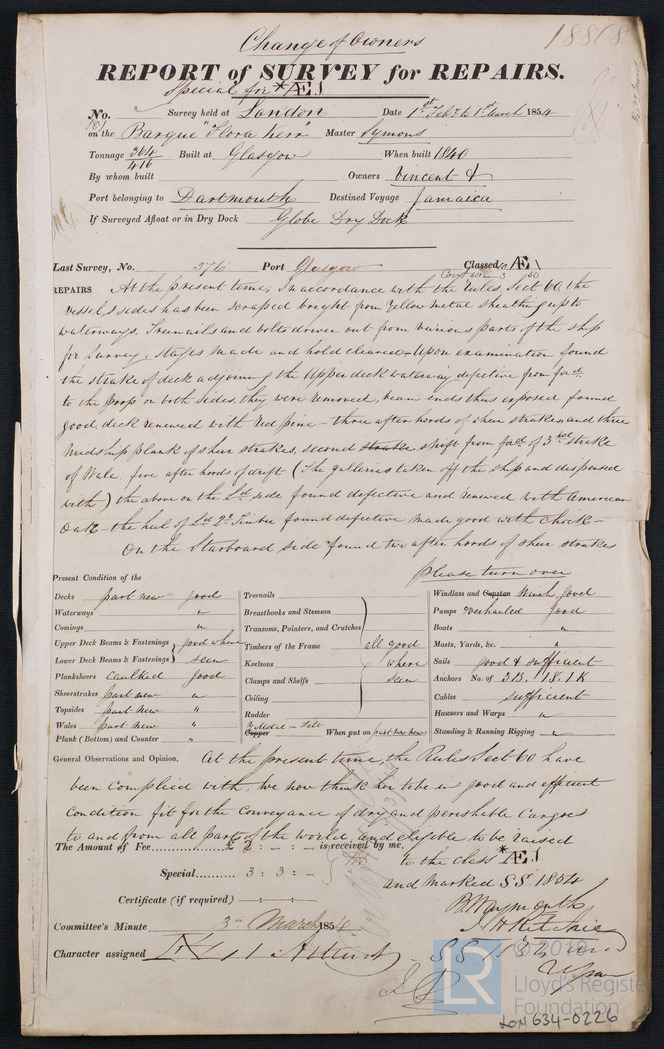 Change of Owners
18818
REPORT of SURVEY for REPAIRS.
Special for *Æ1
No. 181 Survey held at London Date 1st Feby to 1st March 1854
on the Barque "Flora Kerr" Master Symons
Tonnage 364/416 Built at Glasgow When built 1840
By whom built Owners Vincent &
Port belonging to Dartmouth Destined Voyage Jamaica
If Surveyed Afloat or in Dry Dock Globe Dry Dock
Last Survey, No. 376 Port Glasgow Classed Æ1
REPAIRS At the present time, In accordance with the rules, Sect 60, the
Vessels sides has been scraped bright from Yellow metal sheathing up to
waterways. Treenails and bolts driven out from various parts of the ship
for Survey, Stages made and hold cleared - Upon examination found
the strake of deck adjoining the Upper deck waterway defective from
to the poop on both sides, they were removed, beam ends thus exposed found
good, deck renewed with red pine - three after hoods of sheer strakes and three
Midship plank of sheer strakes, second strake shift from of 3rd strake
of Wale, five after hoods of drift (The galleries taken off the ship and dispensed
with) the above on the side found defective and renewed with American
Oak - the heel of Timber found defective made good with chock -
On the Starboard side found two after hoods of sheer strakes
Please turn over
Present Condition of the
Decks part new good
Waterways "
Comings "
Upper Deck Beams & Fastenings good where
Lower Deck Beams & Fastenings seen
Planksheers Caulked good
Sheerstrakes part new "
Topsides part new "
Wales part new "
Plank (Bottom) and Counter "
Treenails
Breasthooks and Stemson
Transoms, Pointers, and Crutches
Timbers of the Frame all good
Keelsons where
Clamps and Shelfs seen
Ceiling
Rudder
Y Metal on Felt
Copper When put on part new now
Windlass and Capstan Winch good
Pumps Overhauled good
Boats "
Masts, Yards, &c. "
Sails good & sufficient
Anchors No. of 3B. 1S. 1K
Cables sufficient
Hawsers and Warps "
Standing & Running Rigging "
General Observations and Opinion, At the present time, the Rules Sect 60 have
been complied with, We now think her to be in good and efficient
Condition fit for the Conveyance of dry and perishable Cargoes
to and from all parts of the world, and elegible to be raised
The Amount of Fee £ : - : - is received by me,
to the class *Æ1
Special 3 : 3 : -
and marked S.S. 1854
Certificate (if required) : - :
B Waymouth
J H Ritchie
Committee's Minute 3rd March 1854
Character assigned
© 2019
LR
Lloyd's Register
Foundation
LON 634-0226